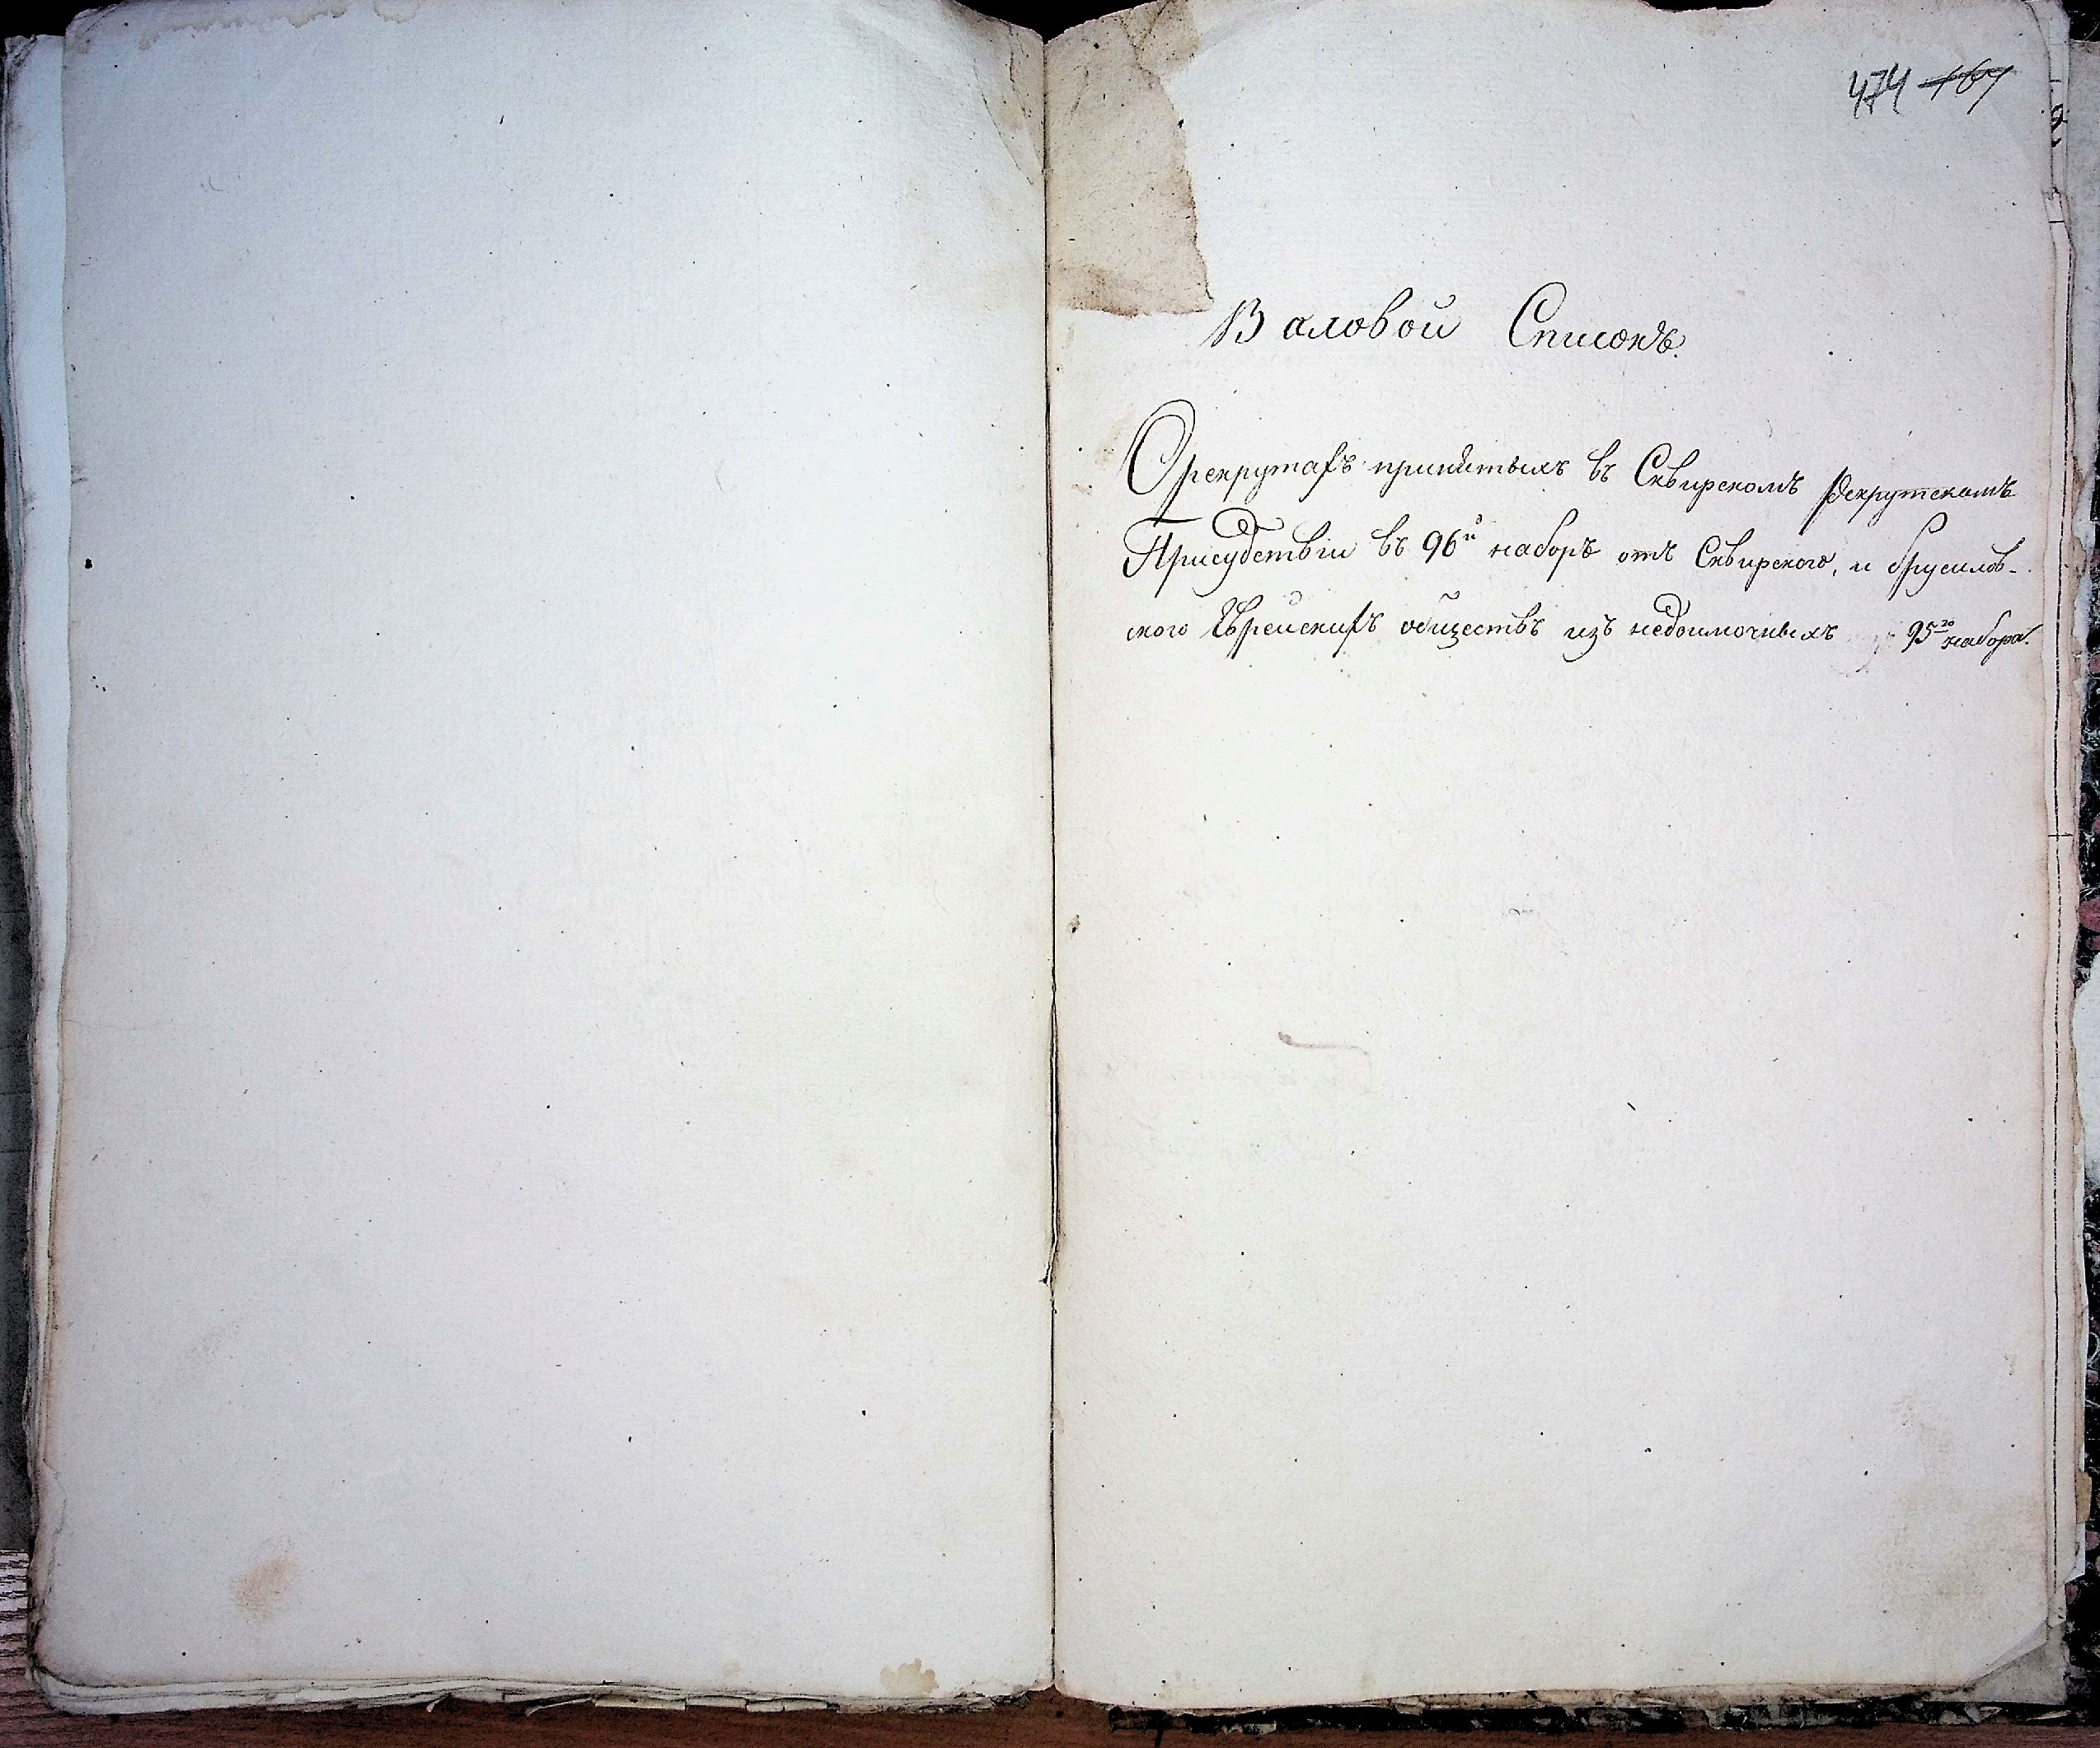 474 164
Валовой Списокъ.
О рекрутахъ принятыхъ въ Сквирскомъ Рекрутскомъ
Присудствіи въ 96й наборъ отъ Сквирского, и брусилов-
ского Еврейскихъ обществъ изъ недоимочныхъ 95го набора.